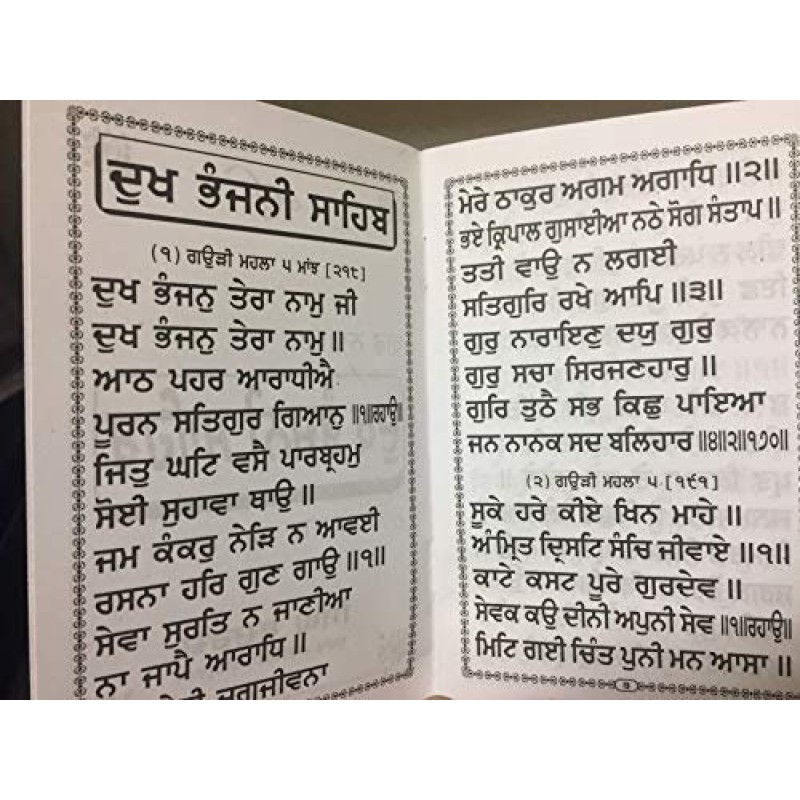 ਦੁਖ ਭੰਜਨੀ ਸਾਹਿਬ
(੧) ਗਉੜੀ ਮਹਲਾ ੫ ਮਾਂਝ [੨੧੮]
ਦੁਖ ਭੰਜਨੁ ਤੇਰਾ ਨਾਮੁ ਜੀ
ਦੁਖ ਭੰਜਨੁ ਤੇਰਾ ਨਾਮੁ ॥
ਆਠ ਪਹਰ ਆਰਾਧੀਐ
ਪੂਰਨ ਸਤਿਗੁਰ ਗਿਆਨੁ ॥੧॥ਰਹਾਉ॥
ਜਿਤੁ ਘਟਿ ਵਸੈ ਪਾਰਬ੍ਰਹਮੁ
ਸੋਈ ਸੁਹਾਵਾ ਥਾਉ ॥
ਜਮ ਕੰਕਰੁ ਨੇੜਿ ਨ ਆਵਈ
ਰਸਨਾ ਹਰਿ ਗੁਣ ਗਾਉ ॥੧॥
ਸੇਵਾ ਸੁਰਤਿ ਨ ਜਾਣੀਆ
ਨਾ ਜਾਪੈ ਆਰਾਧਿ ॥
ਜਗਜੀਵਨਾ
ਮੇਰੇ ਠਾਕੁਰ ਅਗਮ ਅਗਾਧਿ ॥੨॥
ਭਏ ਕ੍ਰਿਪਾਲ ਗੁਸਾਈਆ ਨਠੇ ਸੋਗ ਸੰਤਾਪ ॥
ਤਤੀ ਵਾਉ ਨ ਲਗਈ
ਸਤਿਗੁਰਿ ਰਖੇ ਆਪਿ ॥੩॥
ਗੁਰੁ ਨਾਰਾਇਣੁ ਦਯੁ ਗੁਰੁ
ਗੁਰੁ ਸਚਾ ਸਿਰਜਣਹਾਰੁ ॥
ਗੁਰਿ ਤੁਠੈ ਸਭ ਕਿਛੁ ਪਾਇਆ
ਜਨ ਨਾਨਕ ਸਦ ਬਲਿਹਾਰ ॥੪॥੨॥੧੭੦॥
(੨) ਗਉੜੀ ਮਹਲਾ ੫ [੧੯੧]
ਸੂਕੇ ਹਰੇ ਕੀਏ ਖਿਨ ਮਾਹੇ ॥
ਅੰਮ੍ਰਿਤ ਦ੍ਰਿਸਟਿ ਸੰਚਿ ਜੀਵਾਏ ॥੧॥
ਕਾਟੇ ਕਸਟ ਪੂਰੇ ਗੁਰਦੇਵ ॥
ਸੇਵਕ ਕਉ ਦੀਨੀ ਅਪੁਨੀ ਸੇਵ ॥੧॥ਰਹਾਉ॥
ਮਿਟਿ ਗਈ ਚਿੰਤ ਪੁਨੀ ਮਨ ਆਸਾ ॥